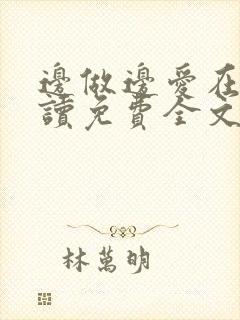 邊做邊愛在
讀免費全文
林萬明